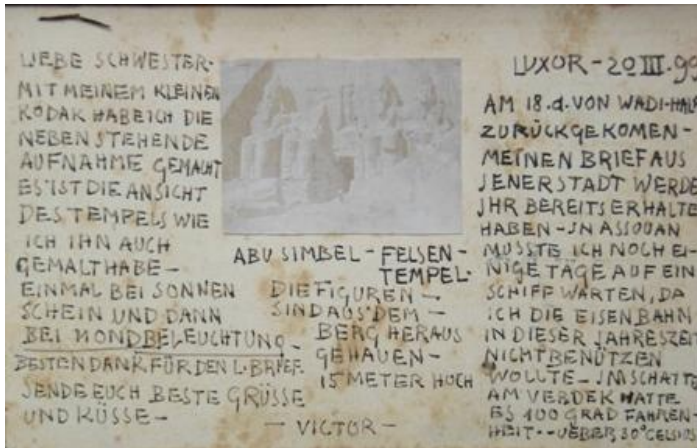 LIEBE SCHWESTER-
MIT MEINEM KLEINEN
KODAK HABE ICH DIE
NEBENSTEHENDE
AUFNAHME GEMACHT
ES IST DIE ANSICHT
DES TEMPELS WIE
ICH IHN AUCH
GEMALT HABE -
EINMAL BEI SONNEN
SCHEIN UND DANN
BEI MONDBELEUCHTUNG -
BESTEN DANK FÜR DEN L. BRIEF.
SENDE EUCH BESTE GRÜSSE
UND KÜSSE -
ABU SIMBEL - FELSEN-
TEMPEL.
DIE FIGUREN -
SIND AUS DEM -
BERG HERAUS
GEHAUEN -
15 METER HOCH
- VICTOR -
LUXOR - 20 III. 99
AM 18. d. VON WADI-HALF
ZURÜCKGEKOMEN -
MEINEN BRIEF AUS
JENER STADT WERDE
JHR BEREITS ERHALTE
HABEN - JN ASSOUAN
MUSSTE ICH NOCH EI-
NIGE TAGE AUF EIN
SCHIFF WARTEN, DA
ICH DIE EISENBAHN
IN DIESER JAHRESZEIT
NICHT BENÜTZEN
WOLLTE - JM SCHATTE
AM VERDEK HATTE
ES 100 GRAD FAHREN-
HEIT - UEBER 30° CELSIUS